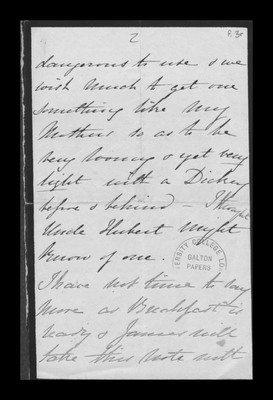 2
dangerous to use & we
wish much to get one
something like my
Mothers so as to be
very roomy & yet very
light with a Dickey
before & behind - I thought
Uncle Hubert might
know of one.
I have not time to say
more as Breakfast is
ready & James will
take this note with
GALTON
PAPERS